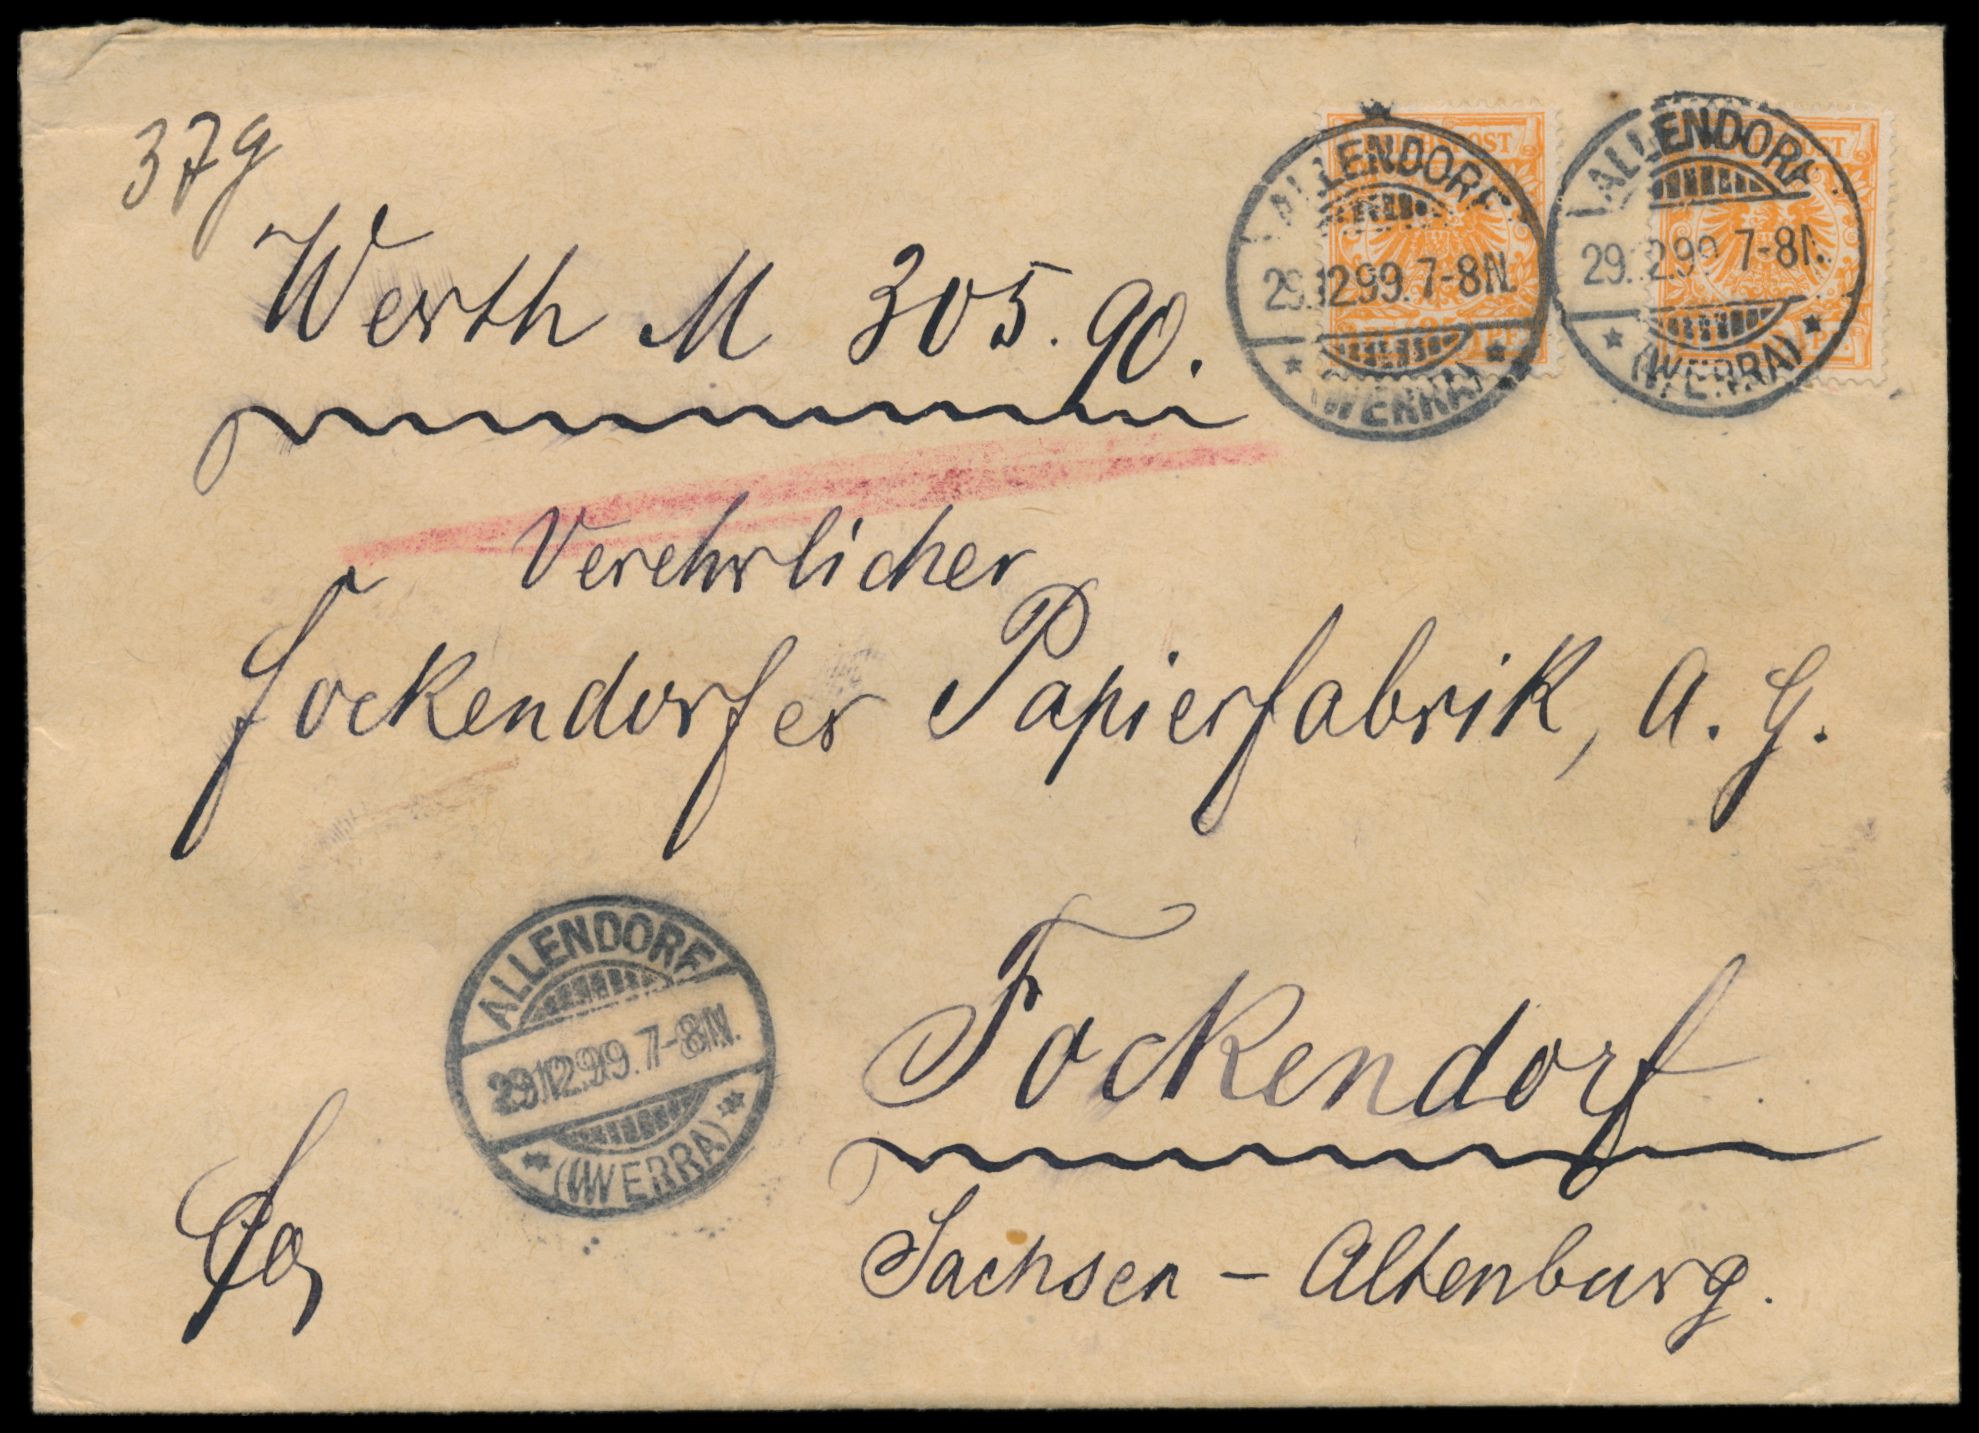 37g
Werth M 305.90.
Verehrlicher
Fockendorfer Papierfabrik, A. G.
Fockendorf
Sachsen-Altenburg.
ALLENDORF
29.12.99. 7-8N.
(WERRA)
ALLENDORF
29.12.99. 7-8N.
(WERRA)
ALLENDORF
29.12.99. 7-8N.
(WERRA)